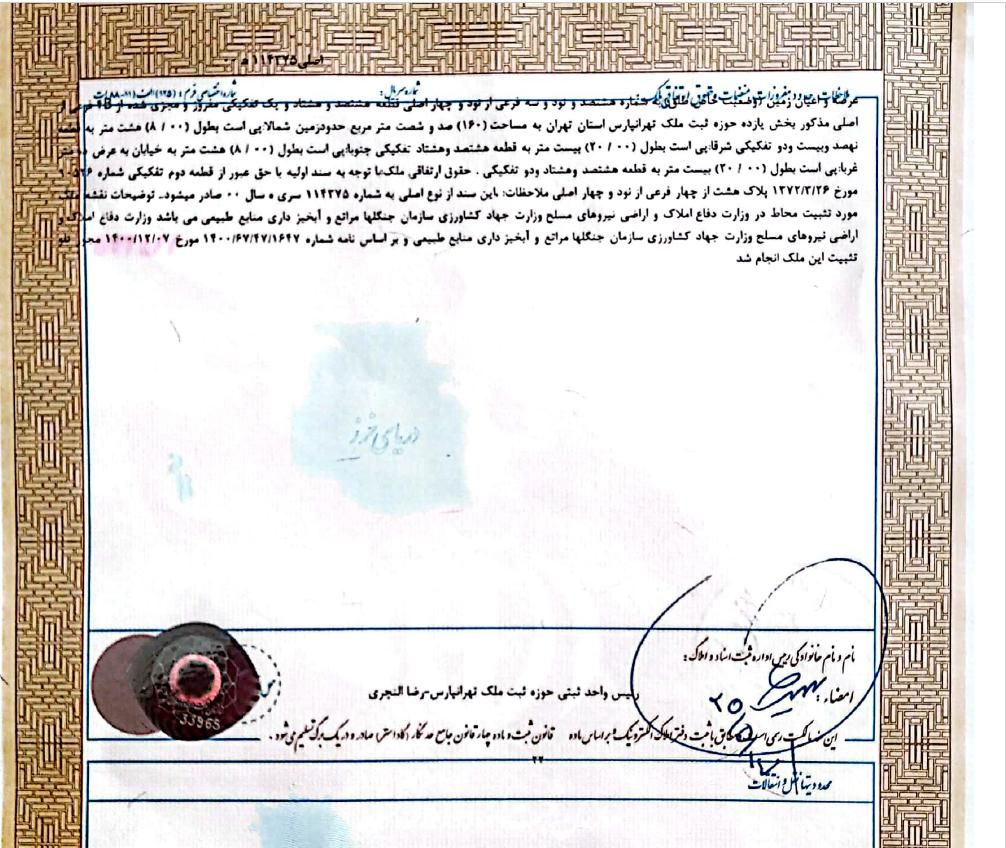 اصلی ۱۱۴۳۷۵ ه ۰۰
ملاحظات حدود و مشخصات و حقوق ارتفاقی ملک
شماره سریال:
شماره اختصاصی فرم: (۱۲۵) الف (۱۱-۸۸) ث
عرصه و اعیان زمین به شماره هشتصد و نود و سه فرعی از نود و چهار اصلی قطعه هشتصد و هشتاد و یک تفکیکی مفروز و مجزی شده از فرعی از
اصلی مذکور بخش یازده حوزه ثبت ملک تهرانپارس استان تهران به مساحت (۱۶۰) صد و شصت متر مربع حدودزمین شمالاپی است بطول (۰۰ / ۸) هشت متر به قطعه
نهصد وبیست ودو تفکیکی شرقاپی است بطول (۰۰ / ۲۰) بیست متر به قطعه هشتصد وهشتاد تفکیکی جنوباپی است بطول (۰۰ / ۸) هشت متر به خیابان به عرض ده متر
غرباپی است بطول (۰۰ / ۲۰) بیست متر به قطعه هشتصد وهشتاد ودو تفکیکی . حقوق ارتفاقی ملک با توجه به سند اولیه با حق عبور از قطعه دوم تفکیکی شماره
مورخ ۱۳۷۲/۳/۲۶ پلاک هشت از چهار فرعی از نود و چهار اصلی ملاحظات: این سند از نوع اصلی به شماره ۱۱۴۳۷۵ سری ه سال ۰۰ صادر میشود.. توضیحات نقشه ملک
مورد تثبیت محاط در وزارت دفاع املاک و اراضی نیروهای مسلح وزارت جهاد کشاورزی سازمان جنگلها مراتع و آبخیز داری منابع طبیعی می باشد وزارت دفاع املاک و
اراضی نیروهای مسلح وزارت جهاد کشاورزی سازمان جنگلها مراتع و آبخیز داری منابع طبیعی و بر اساس نامه شماره ۱۴۰۰/۶۷/۴۷/۱۶۴۷ مورخ ۱۴۰۰/۱۲/۰۷ مجوز رفع
تثبیت این ملک انجام شد
دریای خزر
نام و نام خانوادگی رییس اداره ثبت اسناد و املاک:
رئیس واحد ثبتی حوزه ثبت ملک تهرانپارس-رضا النجری
امضاء:
33965
این سند مالکیت رسمی است و مطابق با ثبت دفتر املاک الکترونیک بر اساس ماده ۲۲ قانون ثبت و ماده چهار قانون جامع حدنگار (کاداستر) صادر و در یک برگ تسلیم می شود .
محدودیتها نقل و انتقالات